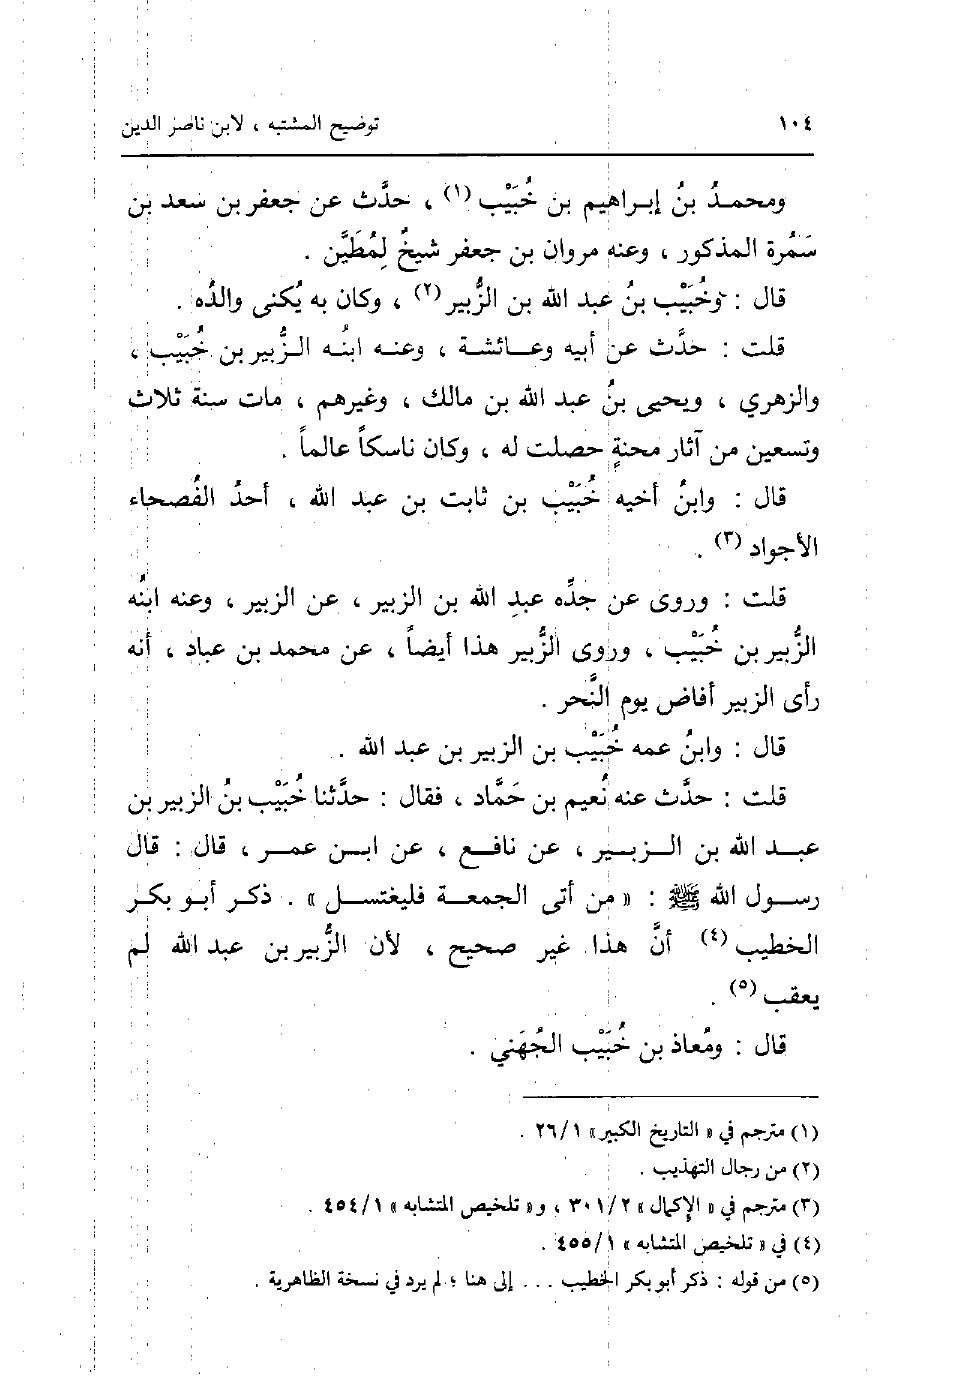 ١٠٤ توضيح المشتبه ، لابن ناصر الدين
ومحمدُ بنُ إبراهيم بن خُبَيْب (١) ، حدَّث عن جعفر بن سعد بن
سَمُرة المذكور ، وعنه مروان بن جعفر شيخٌ لِمُطَيَّن .
قال : وخُبَيْب بنُ عبد الله بن الزُّبير (٢) ، وكان به يُكنى والدُه .
قلت : حدَّث عن أبيه وعائشة ، وعنه ابنُه الزُّبير بن خُبَيْب ،
والزهري ، ويحيى بنُ عبد الله بن مالك ، وغيرهم ، مات سنة ثلاث
وتسعين من آثار محنةٍ حصلت له ، وكان ناسكاً عالماً .
قال : وابنُ أخيه خُبَيْب بن ثابت بن عبد الله ، أحدُ الفُصحاء
الأجواد (٣) .
قلت : وروى عن جدِّه عبدِ الله بن الزبير ، عن الزبير ، وعنه ابنُه
الزُّبير بن خُبَيْب ، وروى الزُّبير هذا أيضاً ، عن محمد بن عباد ، أنه
رأى الزبير أفاض يوم النَّحر .
قال : وابنُ عمه خُبَيْب بن الزبير بن عبد الله .
قلت : حدَّث عنه نُعيم بن حَمَّاد ، فقال : حدَّثنا خُبَيْب بنُ الزبير بن
عبد الله بن الزبير ، عن نافع ، عن ابن عمر ، قال : قال
رسول الله ﷺ : « من أتى الجمعة فليغتسل » . ذكر أبو بكر
الخطيب (٤) أنَّ هذا غير صحيح ، لأن الزُّبير بن عبد الله لم
يعقب (٥) .
قال : ومُعاذ بن خُبَيْب الجُهَني .
(١) مترجم في « التاريخ الكبير » ٢٦/١ .
(٢) من رجال التهذيب .
(٣) مترجم في « الإكمال » ٣٠١/٢ ، و« تلخيص المتشابه » ٤٥٤/١ .
(٤) في « تلخيص المتشابه » ٤٥٥/١ .
(٥) من قوله : ذكر أبو بكر الخطيب ... إلى هنا ؛ لم يرد في نسخة الظاهرية .